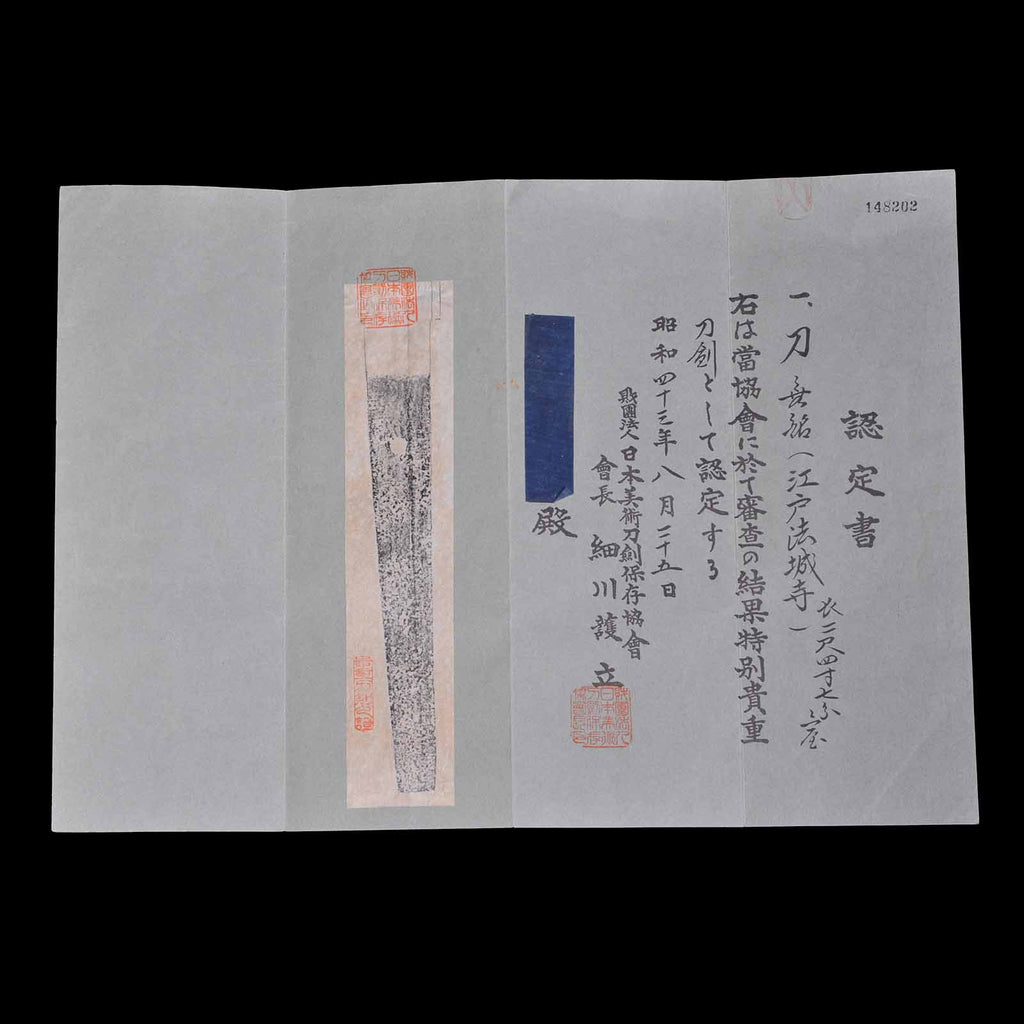 148202
認定書
一、刀 無銘(江戸法城寺)
長二尺四寸七分
右は當協會に於て審査の結果特別貴重
刀劍として認定する
昭和四十三年八月二十五日
財團法人日本美術刀劍保存協會
會長 細川護立
殿